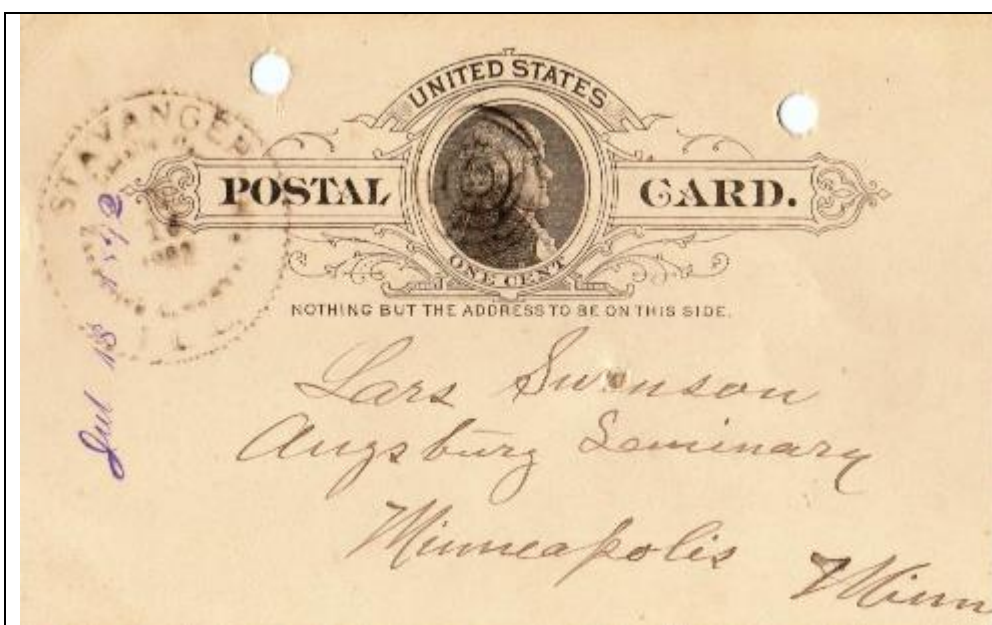 UNITED STATES
POSTAL CARD.
ONE CENT
NOTHING BUT THE ADDRESS TO BE ON THIS SIDE.
STAVANGER
Jul 18 1892
Lars Swenson
Augsburg Seminary
Minneapolis Minn